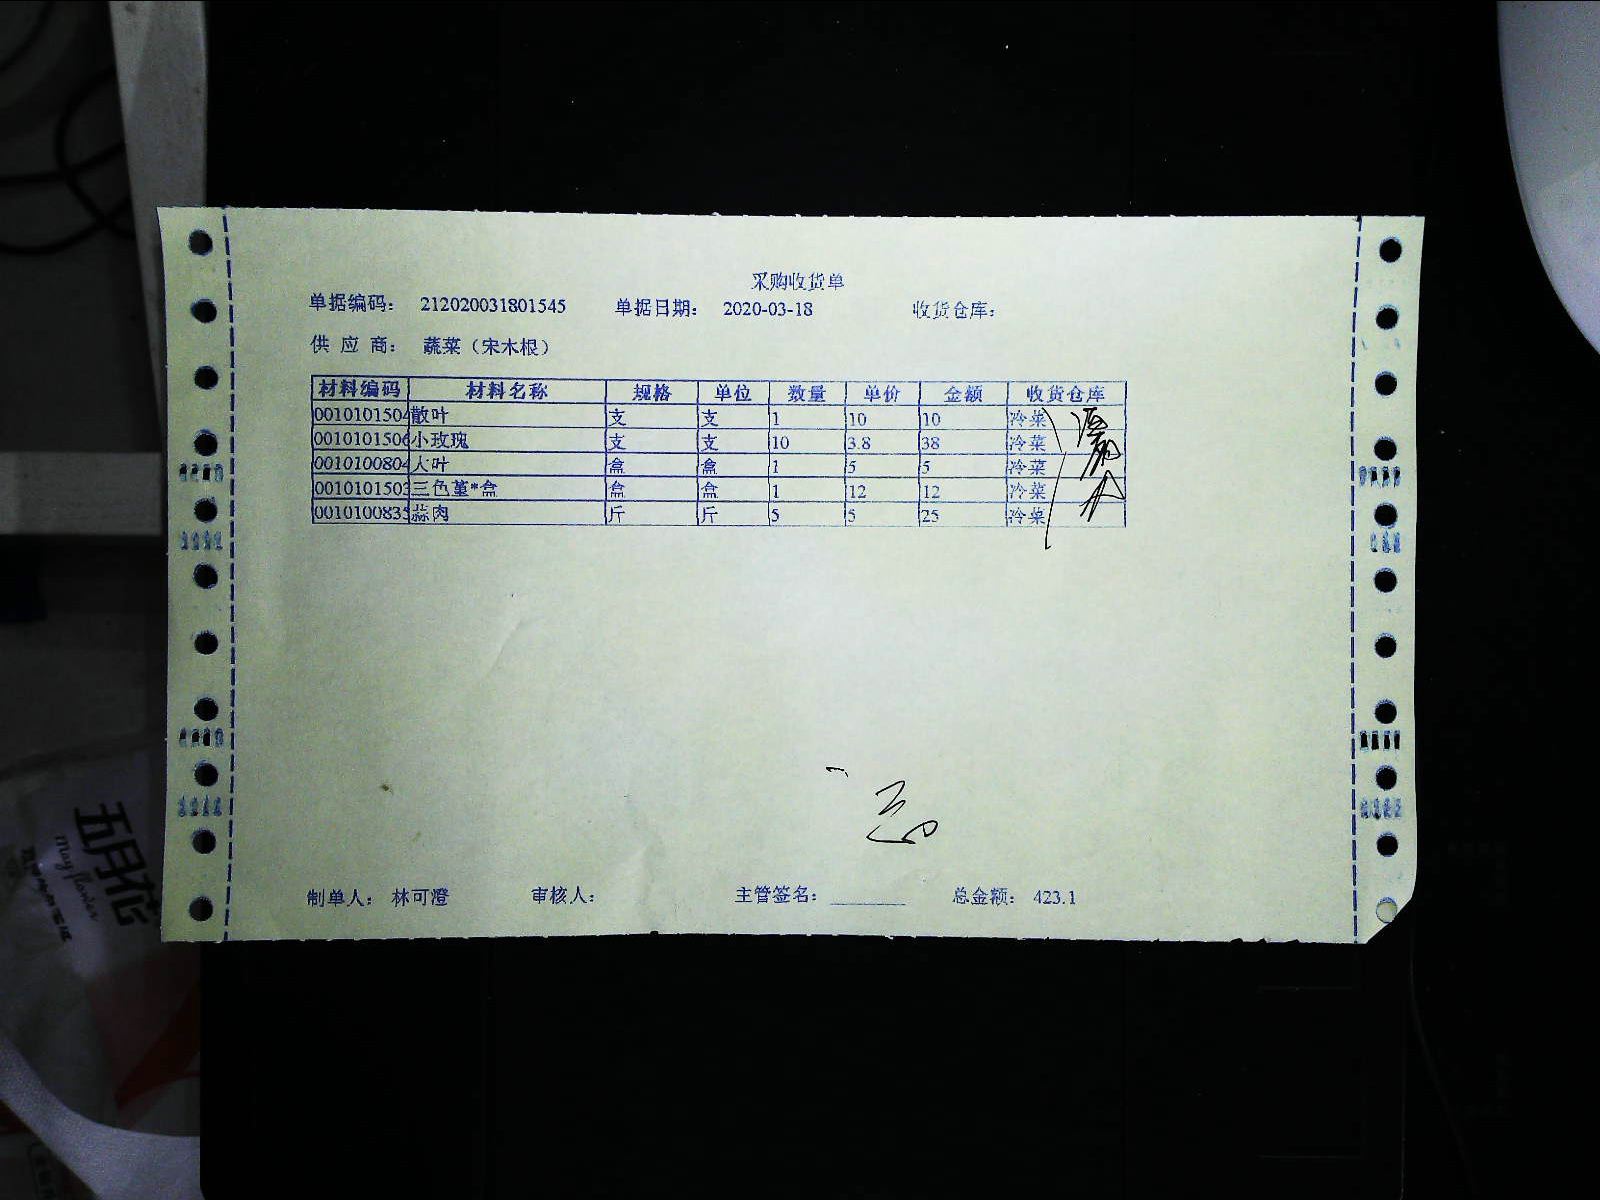 采购收货单
单据编码： 212020031801545 单据日期： 2020-03-18 收货仓库：
供 应 商： 蔬菜（宋木根）
材料编码 材料名称 规格 单位 数量 单价 金额 收货仓库
0010101504 散叶 支 支 1 10 10 冷菜
0010101506 小玫瑰 支 支 10 3.8 38 冷菜
0010100804 大叶 盒 盒 1 5 5 冷菜
001010150 三色堇*盒 盒 盒 1 12 12 冷菜
001010083 蒜肉 斤 斤 5 5 25 冷菜
制单人： 林可澄 审核人： 主管签名： 总金额： 423.1
五月花
May flower